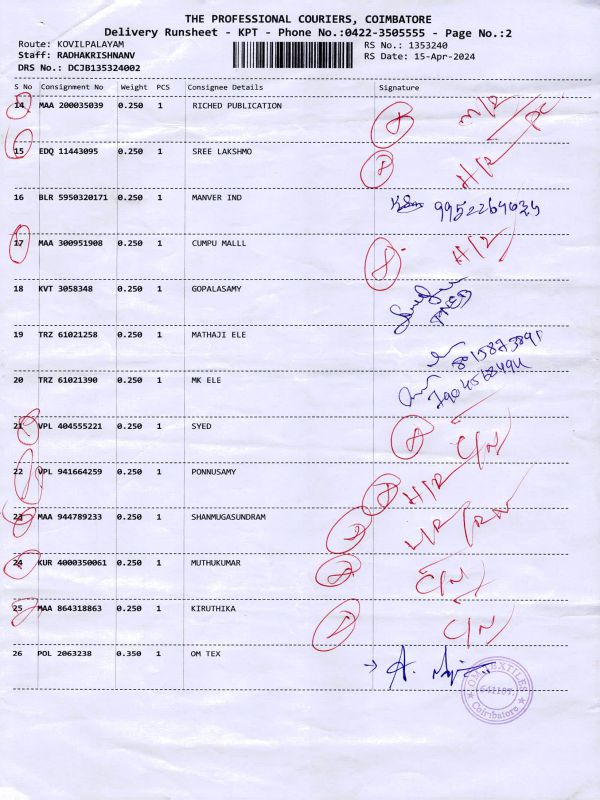 THE PROFESSIONAL COURIERS, COIMBATORE
Delivery Runsheet - KPT - Phone No.:0422-3505555 - Page No.:2
Route: KOVILPALAYAM RS No.: 1353240
Staff: RADHAKRISHNANV RS Date: 15-Apr-2024
DRS No.: DCJB135324002
S No Consignment No Weight PCS Consignee Details Signature
14 MAA 200035039 0.250 1 RICHED PUBLICATION
15 EDQ 11443095 0.250 1 SREE LAKSHMO H/R
16 BLR 5950320171 0.250 1 MANVER IND
17 MAA 300951908 0.250 1 CUMPU MALLL H/R
18 KVT 3058348 0.250 1 GOPALASAMY
19 TRZ 61021258 0.250 1 MATHAJI ELE
20 TRZ 61021390 0.250 1 MK ELE
21 VPL 404555221 0.250 1 SYED C/N
22 VPL 941664259 0.250 1 PONNUSAMY H/R
23 MAA 944789233 0.250 1 SHANMUGASUNDRAM
24 KUR 4000350061 0.250 1 MUTHUKUMAR C/N
25 MAA 864318863 0.250 1 KIRUTHIKA C/N
26 POL 2063238 0.350 1 OM TEX
OM TEXTILES
641107
Coimbatore